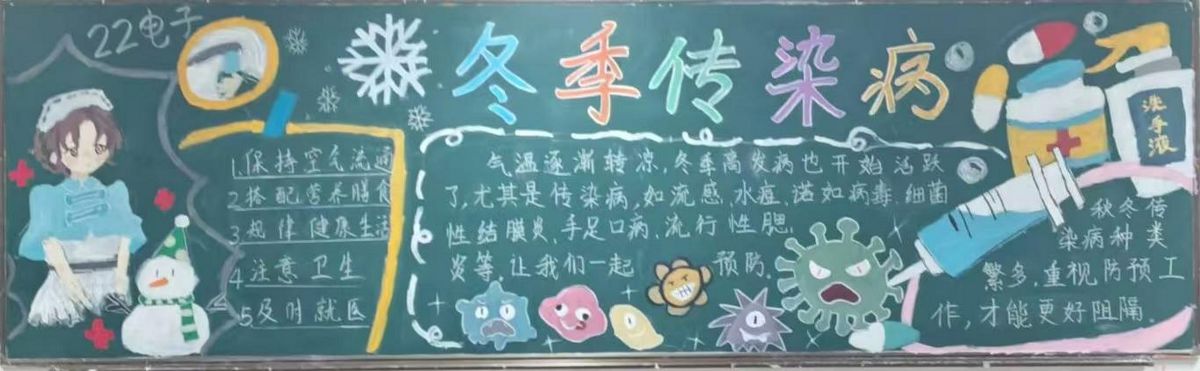 22电子
冬季传染病
1.保持空气流通
2.搭配营养膳食
3.规律健康生活
4.注意卫生
5.及时就医
气温逐渐转凉,冬季高发病也开始活跃
了,尤其是传染病,如流感.水痘.诺如病毒.细菌
性结膜炎.手足口病.流行性腮.
炎等.让我们一起 预防.
洗手液
秋冬传
染病种类
繁多,重视防预工
作,才能更好阻隔.